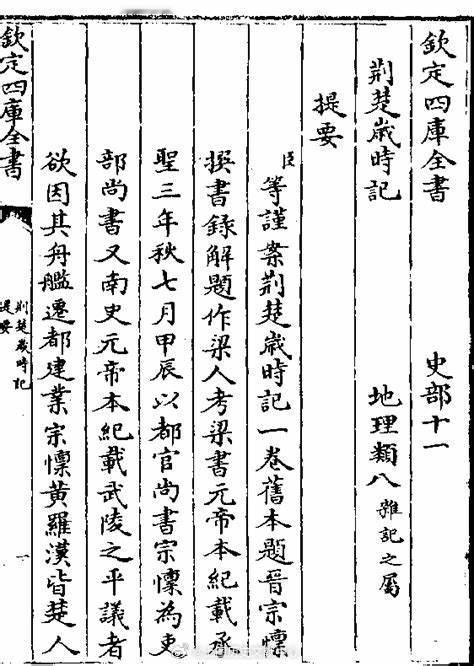 欽定四庫全書
史部十一
荆楚歲時記
地理類八雜記之屬
提要
臣等謹案荆楚歲時記一卷舊本題晉宗懍
撰書錄解題作梁人考梁書元帝本紀載承
聖三年秋七月甲辰以都官尚書宗懍為吏
部尚書又南史元帝本紀載武陵之平議者
欲因其舟艦遷都建業宗懍黃羅漢皆楚人
欽定四庫全書
荆楚歲時記
提要
一